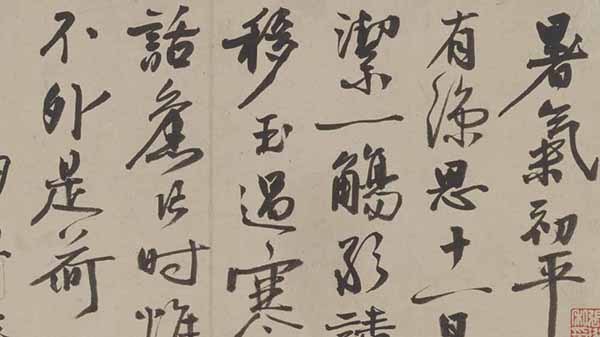 暑氣初平
有涼思十一日
潔一觴敢請
移玉過寒
話舊片时惟
不外是荷